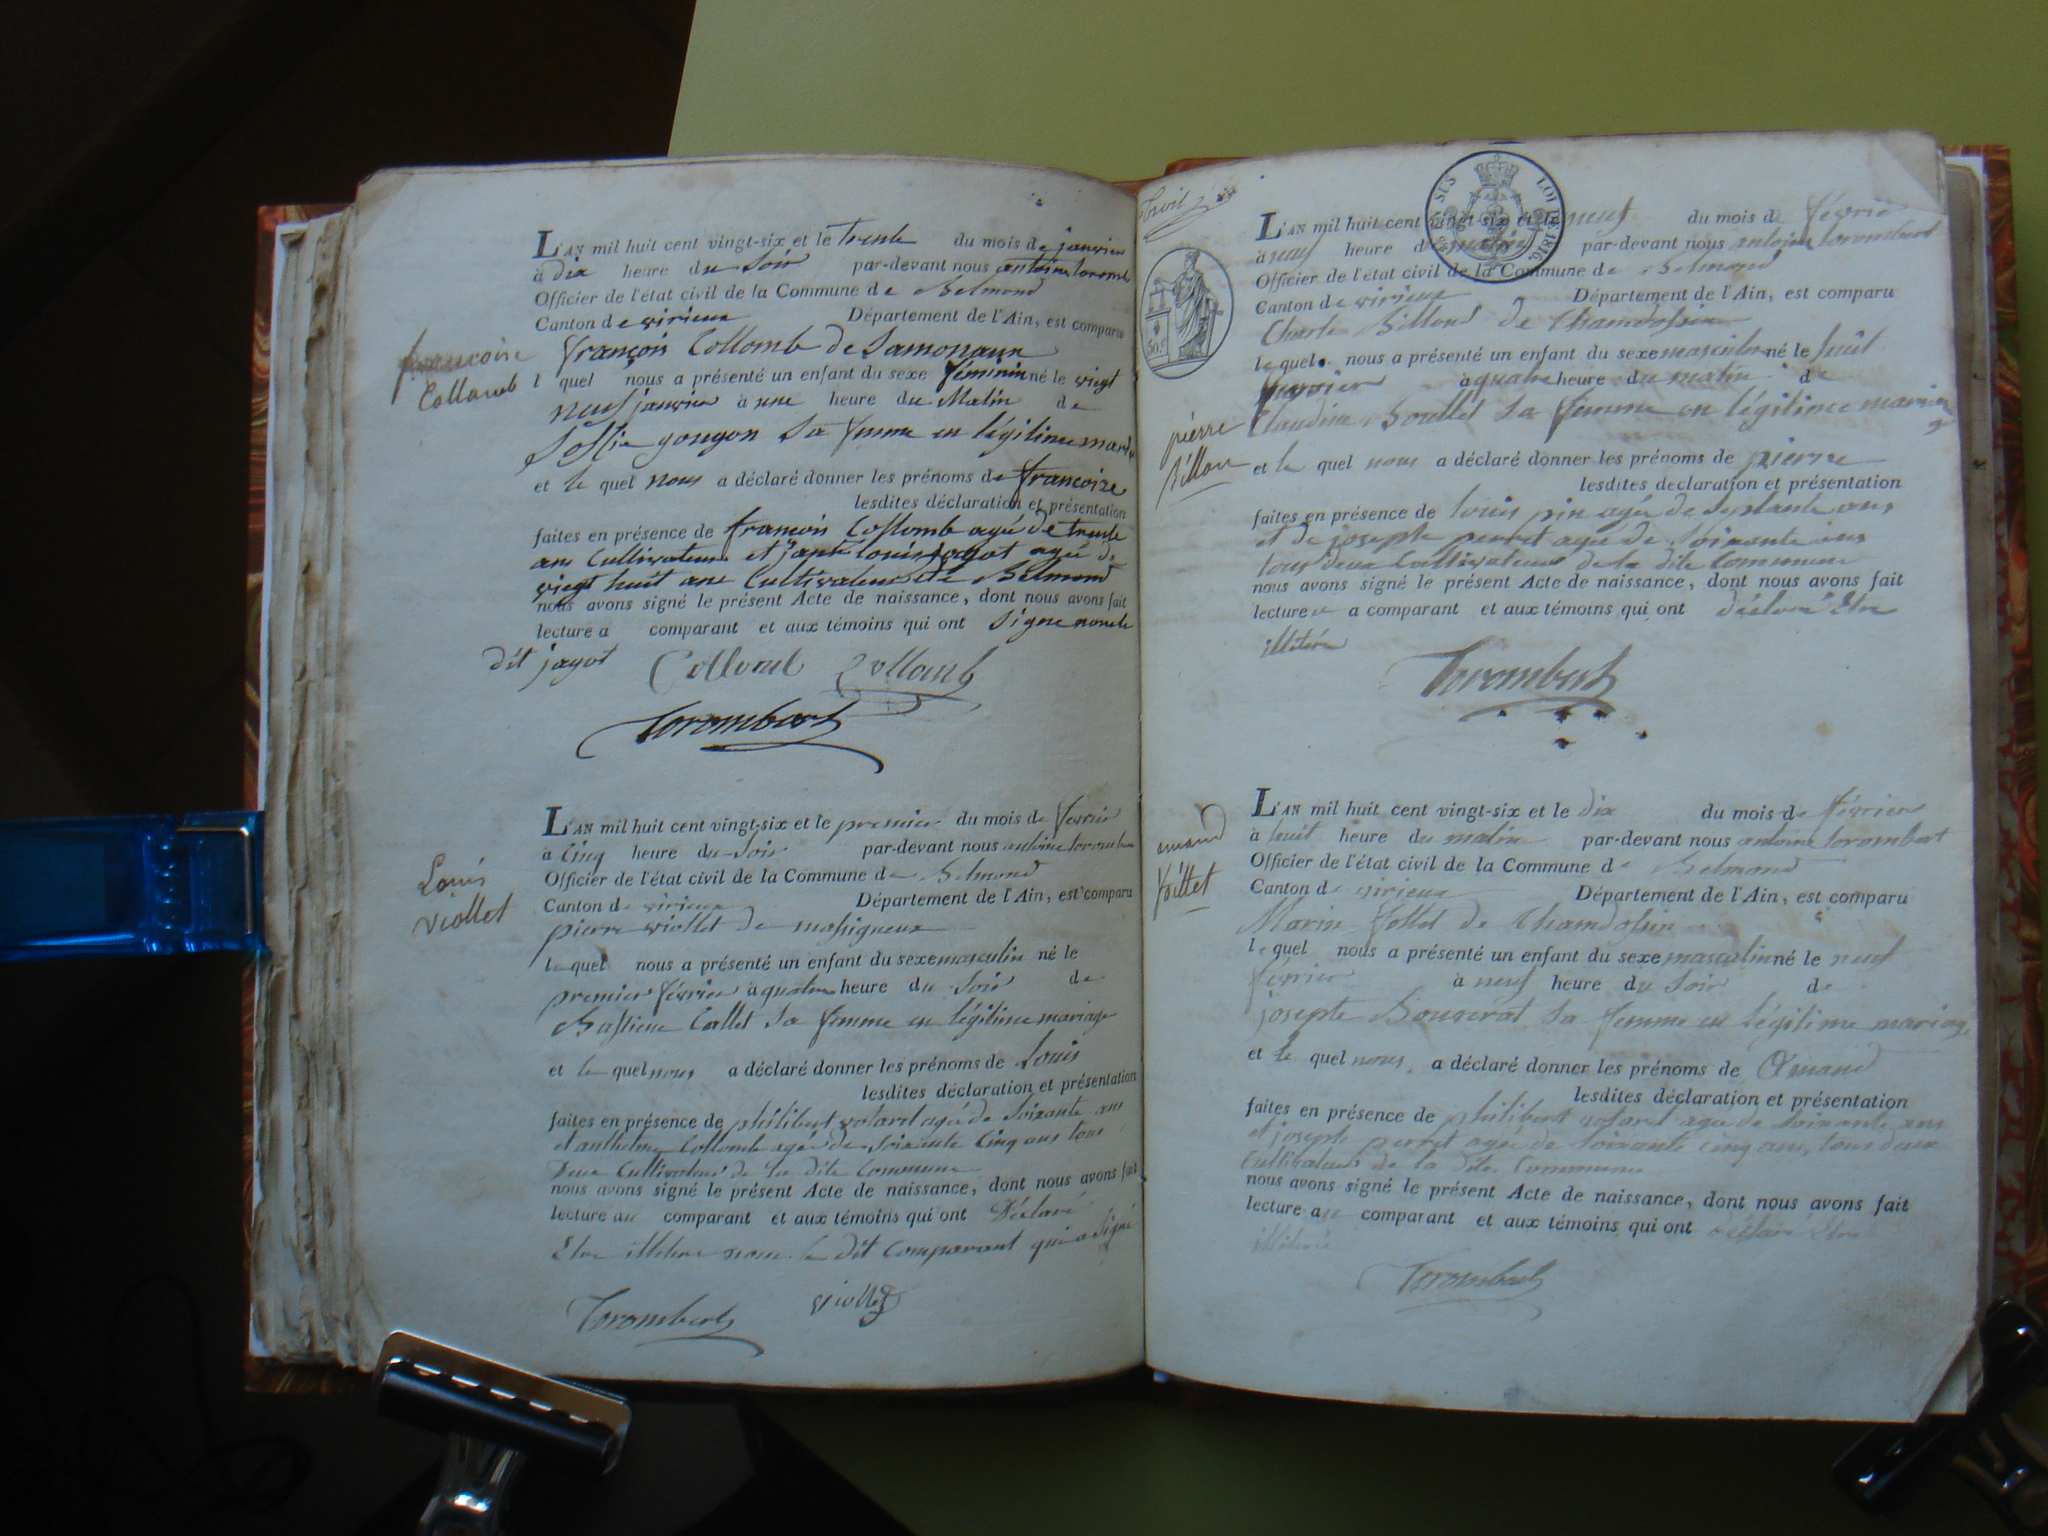 L'AN mil huit cent vingt-six et le trente du mois de janvier
à dix heure du soir par-devant nous antoine toromb
Officier de l'état civil de la Commune de Belmond
Canton de virieux Département de l'Ain, est comparu
françois Collomb de Samonaux
françoise
Collomb
l quel nous a présenté un enfant du sexe féminin né le vingt
neuf janvier à une heure du Matin de
gougon sa femme en légitime maria
et le quel nous a déclaré donner les prénoms de francoise
lesdites déclaration et présentation
faites en présence de francois Collomb agé de trente
ans Cultivateur et louis jagot agé de
vingt huit ans Cultivateur de Belmond
nous avons signé le présent Acte de naissance, dont nous avons fait
lecture a comparant et aux témoins qui ont signe non le
dit jagot Collomb Collomb
Torombert
L'AN mil huit cent vingt-six et le premier du mois de février
à Cinq heure du Soir par-devant nous antoine torombe
Officier de l'état civil de la Commune de Belmond
Canton de virieux Département de l'Ain, est comparu
Louis
viollet
pierre viollet de massigneux
le quel nous a présenté un enfant du sexe masculin né le
premier février à quatre heure du Soir de
Bastiene Callet sa femme en légitime mariage
et le quel nous a déclaré donner les prénoms de Louis
lesdites déclaration et présentation
faites en présence de philibert votaret agé de soixante ans
et anthelme Collomb agé de soixante Cinq ans tous
deux Cultivateur de la dite Commune
nous avons signé le présent Acte de naissance, dont nous avons fait
lecture au comparant et aux témoins qui ont Déclaré
Etre illitere non le dit Comparant qui a signé
Torombert viollet
SUS LOI DE 1816
50.c
L'AN mil huit cent vingt-six et le neuf du mois de février
à neuf heure du matin par-devant nous antoine torombert
Officier de l'état civil de la Commune de Belmond
Canton de virieux Département de l'Ain, est comparu
Charle Billond de Chandossin
lequel nous a présenté un enfant du sexe masculin né le huit
fevrier à quatre heure du matin de
Claudine Boullet sa femme en légitime mariage
pierre
billon
et le quel nous a déclaré donner les prénoms de pierre
lesdites declaration et présentation
faites en présence de louis pin agé de septante ans
et de josepte perret agé de soixante ans
tous deux Cultivateur de la dite Commune
nous avons signé le présent Acte de naissance, dont nous avons fait
lecture a comparant et aux témoins qui ont déclaré Etre
illitéré
Torombert
L'AN mil huit cent vingt-six et le dix du mois de février
à huit heure du matin par-devant nous antoine torombert
Officier de l'état civil de la Commune de Belmond
Canton de virieux Département de l'Ain, est comparu
Marin follet de Chandossin
le quel nous a présenté un enfant du sexe masculin né le neuf
février à neuf heure du Soir de
josepte sa femme en légitime mariage
et le quel nous a déclaré donner les prénoms de Amand
lesdites déclaration et présentation
faites en présence de philibert votaret agé de soixante ans
et josepte perret agée de soixante cinq ans, tous deux
Cultivateur de la dite Commune
nous avons signé le présent Acte de naissance, dont nous avons fait
lecture au comparant et aux témoins qui ont déclaré Etre
illitéré
Torombert